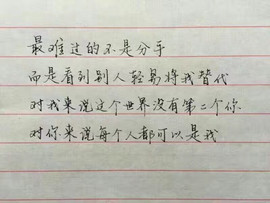 最难过的不是分手
而是看到别人轻易将我替代
对我来说这个世界没有第二个你
对你来说每个人都可以是我